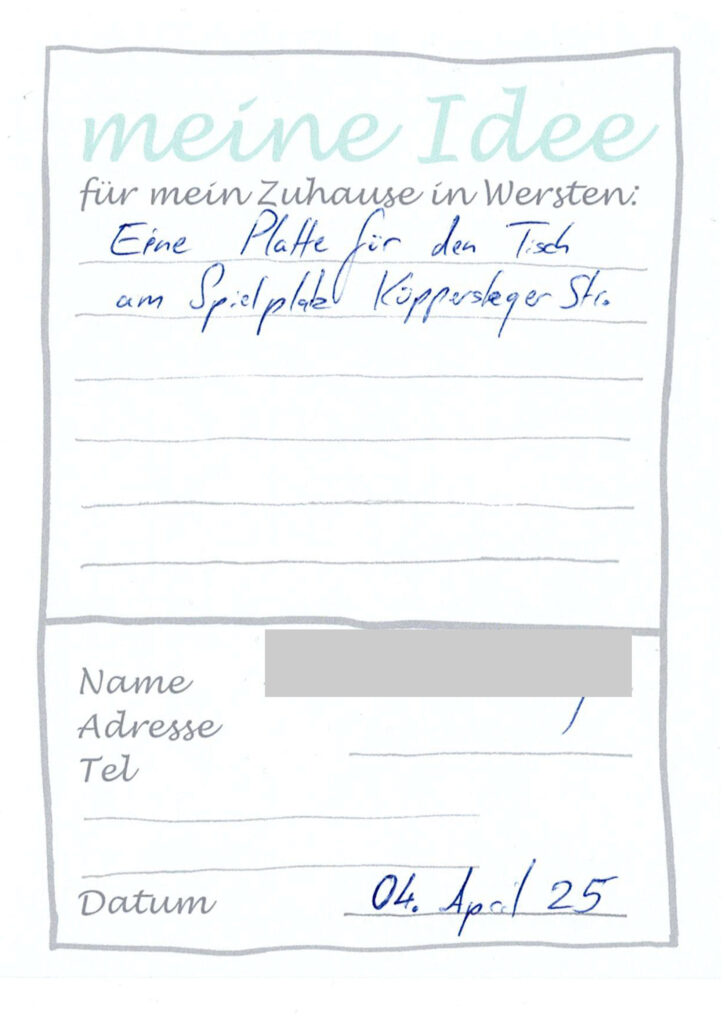 meine Idee
für mein Zuhause in Wersten:
Eine Platte für den Tisch
am Spielplatz Küppersteger Str.
Name
Adresse
Tel
Datum 04. April 25